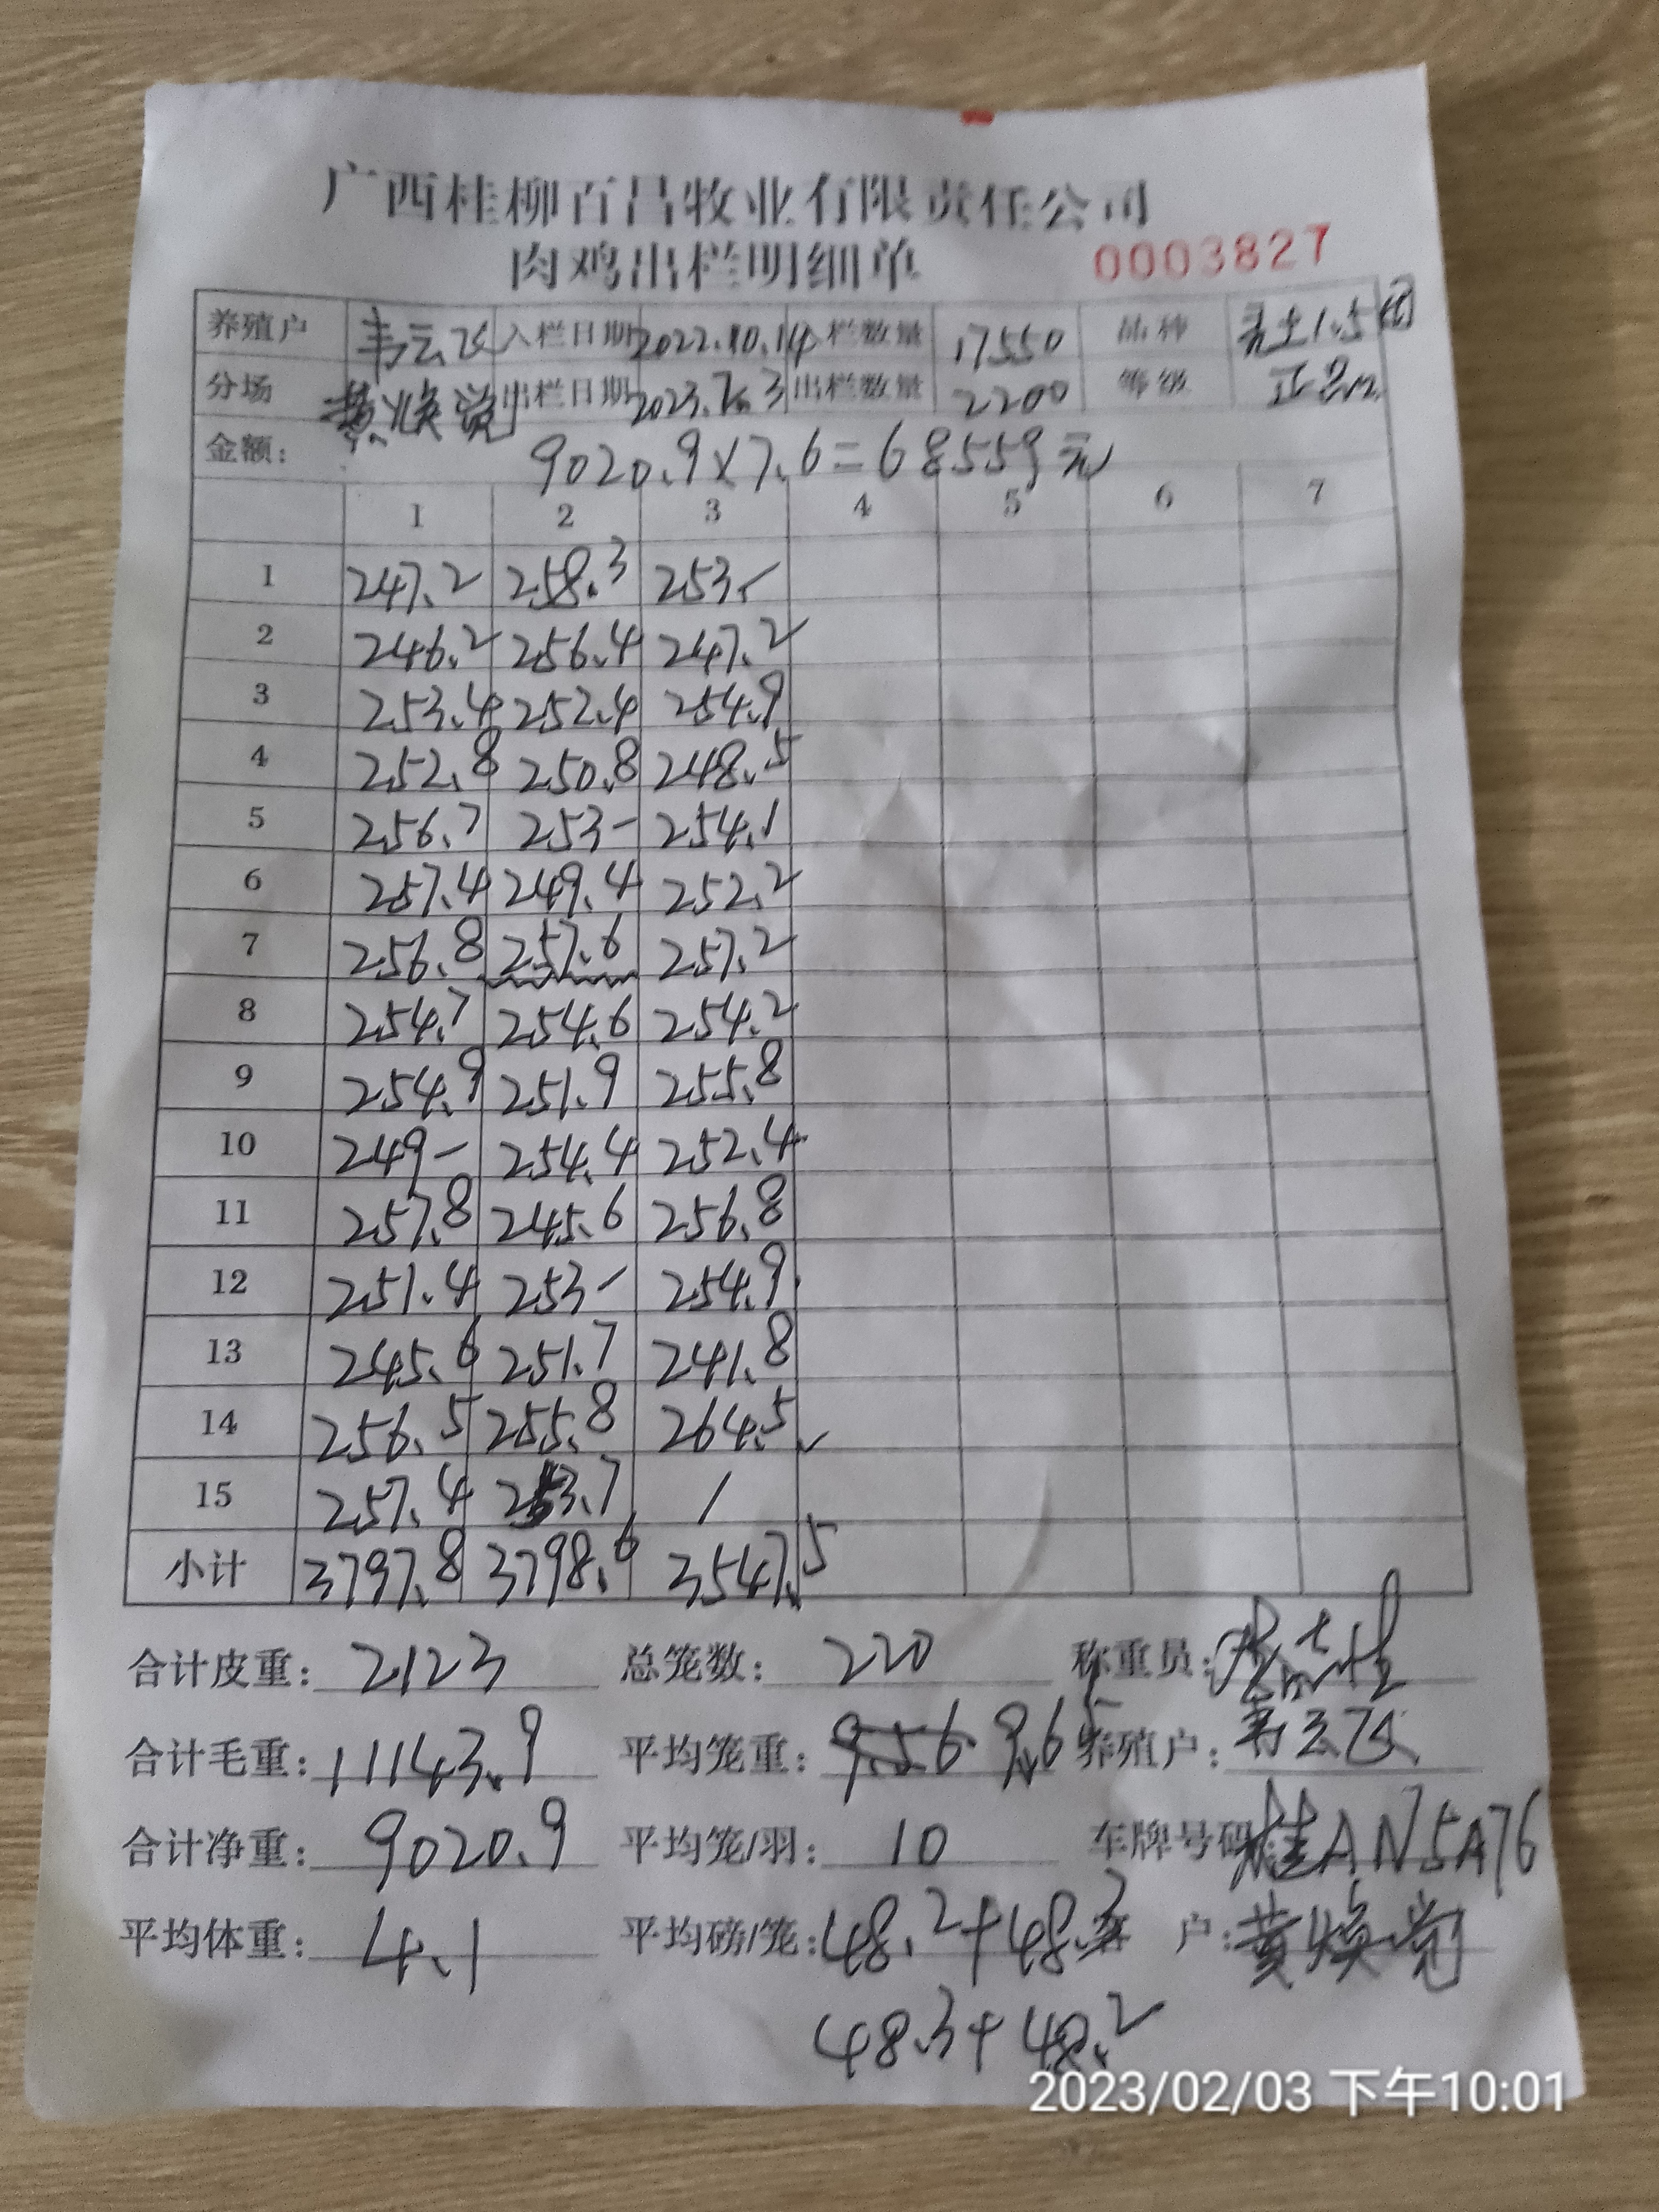 广西桂柳百昌牧业有限责任公司
肉鸡出栏明细单 0003827
养殖户 韦云飞 入栏日期 2022.10.14 入栏数量 17550 品种 土1.5
分场 黄焕党 出栏日期 2023.2.3 出栏数量 2200 等级 正品
金额: 9020.9×7.6=68559元
1 2 3 4 5 6 7
1 247.2 258.3 253-
2 246.2 256.4 247.2
3 253.4 252.4 254.9
4 252.8 250.8 248.5
5 256.7 253- 254.1
6 257.4 249.4 252.2
7 256.8 257.6 257.2
8 254.7 254.6 254.2
9 254.9 251.9 255.8
10 249- 254.4 252.4
11 257.8 245.6 256.8
12 251.4 253- 254.9
13 245.6 251.7 241.8
14 256.5 255.8 264.5
15 257.4 253.7 /
小计 3797.8 3798.6 3547.5
合计皮重: 2123 总笼数: 220 称重员:
合计毛重: 11143.9 平均笼重: 9.56 9.65 养殖户: 韦云飞
合计净重: 9020.9 平均笼/羽: 10 车牌号码: 桂AN5A76
平均体重: 4.1 平均磅/笼: 48.2+48.3 客户: 黄焕党
48.3+48.2
2023/02/03 下午10:01